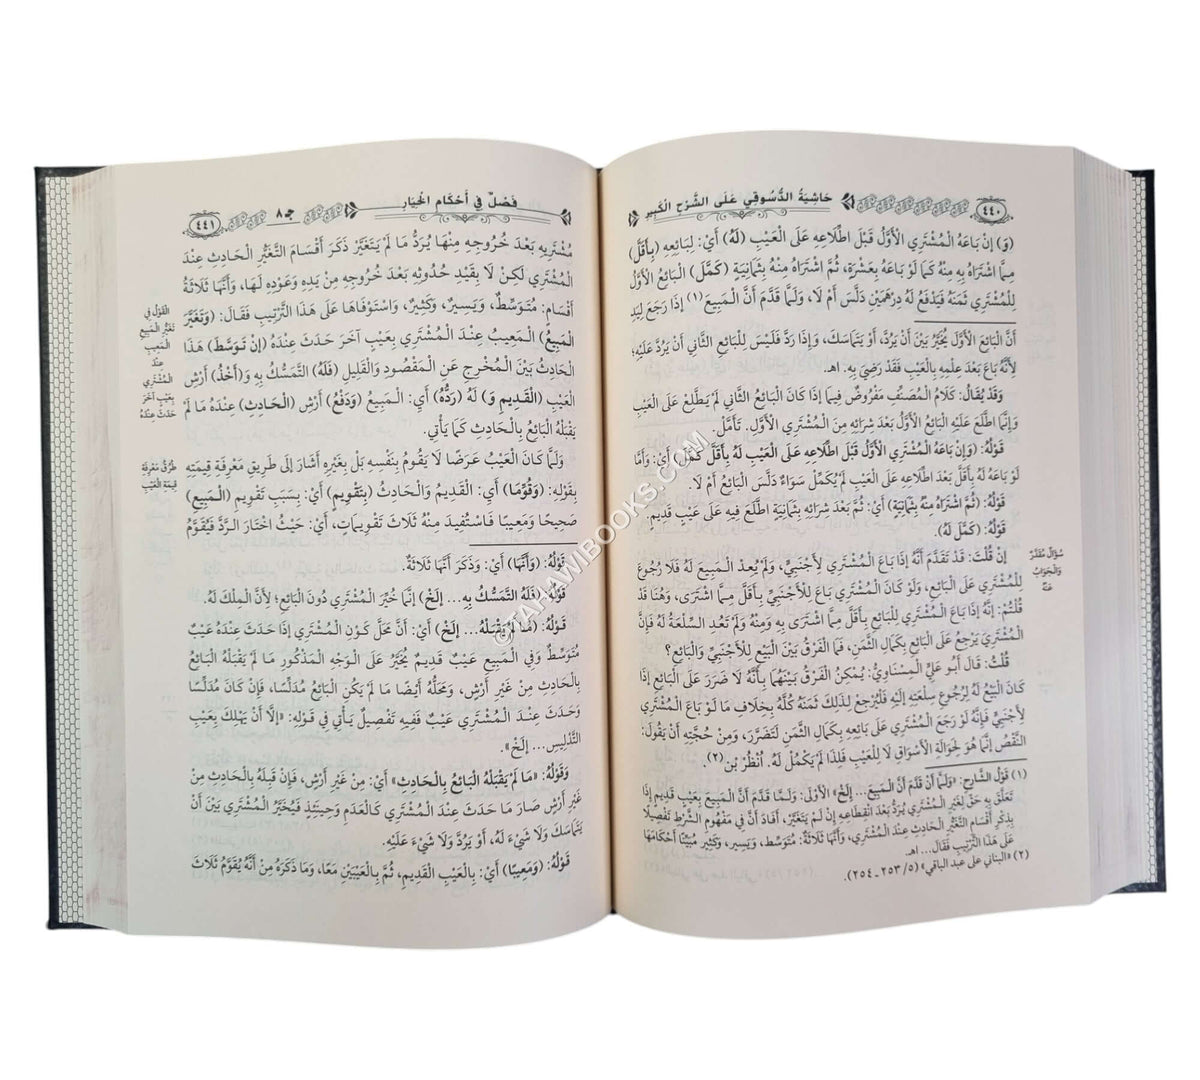 ٤٤٠
حَاشِيَةُ الدُّسُوقِي عَلَى الشَّرْحِ الْكَبِيرِ
(وَ) إِنْ بَاعَهُ الْمُشْتَرِي الْأَوَّلُ قَبْلَ اطِّلَاعِهِ عَلَى الْعَيْبِ (لَهُ) أَيْ: لِبَائِعِهِ (بِأَقَلَّ)
مِمَّا اشْتَرَاهُ بِهِ مِنْهُ كَمَا لَوْ بَاعَهُ بِعَشَرَةٍ، ثُمَّ اشْتَرَاهُ مِنْهُ بِثَمَانِيَةٍ (كَمَّلَ) الْبَائِعُ الْأَوَّلُ
لِلْمُشْتَرِي ثَمَنَهُ فَيَدْفَعُ لَهُ دِرْهَمَيْنِ دَلَّسَ أَمْ لَا، وَلَمَّا قَدَّمَ أَنَّ الْمَبِيعَ (١) إِذَا رَجَعَ لِيَدِ
أَنَّ الْبَائِعَ الْأَوَّلَ يُخَيَّرُ بَيْنَ أَنْ يَرُدَّ، أَوْ يَتَمَاسَكَ، وَإِذَا رَدَّ فَلَيْسَ لِلْبَائِعِ الثَّانِي أَنْ يَرُدَّ عَلَيْهِ؛
لِأَنَّهُ بَاعَ بَعْدَ عِلْمِهِ بِالْعَيْبِ فَقَدْ رَضِيَ بِهِ: اهـ
وَقَدْ يُقَالُ: كَلَامُ الْمُصَنِّفِ مَفْرُوضٌ فِيمَا إِذَا كَانَ الْبَائِعُ الثَّانِي لَمْ يَطَّلِعْ عَلَى الْعَيْبِ
وَإِنَّمَا اطَّلَعَ عَلَيْهِ الْبَائِعُ الْأَوَّلُ بَعْدَ شِرَائِهِ مِنَ الْمُشْتَرِي الْأَوَّلِ. تَأَمَّلْ.
قَوْلُهُ: (وَإِنْ بَاعَهُ الْمُشْتَرِي الْأَوَّلُ قَبْلَ اطِّلَاعِهِ عَلَى الْعَيْبِ لَهُ بِأَقَلَّ كَمَّلَ) أَيْ: وَأَمَّا
لَوْ بَاعَهُ لَهُ بِأَقَلَّ بَعْدَ اطِّلَاعِهِ عَلَى الْعَيْبِ لَمْ يُكْمِلْ سَوَاءٌ دَلَّسَ الْبَائِعُ أَمْ لَا.
قَوْلُهُ: (ثُمَّ اشْتَرَاهُ مِنْهُ بِثَمَانِيَةٍ) أَيْ: ثُمَّ بَعْدَ شِرَائِهِ بِثَمَانِيَةٍ اطَّلَعَ فِيهِ عَلَى عَيْبٍ قَدِيمٍ.
قَوْلُهُ: (كَمَّلَ لَهُ).
سُؤَالٌ مُقَدَّرٌ
وَالْجَوَابُ
عَنْهُ
إِنْ قُلْتَ: قَدْ تَقَدَّمَ أَنَّهُ إِذَا بَاعَ الْمُشْتَرِي لِأَجْنَبِيٍّ، وَلَمْ يُعِدِ الْمَبِيعَ لَهُ فَلَا رُجُوعَ
لِلْمُشْتَرِي عَلَى الْبَائِعِ، وَلَوْ كَانَ الْمُشْتَرِي بَاعَ لِلْأَجْنَبِيِّ بِأَقَلَّ مِمَّا اشْتَرَى، وَهُنَا قَدْ
قُلْتُمْ: إِنَّهُ إِذَا بَاعَ الْمُشْتَرِي لِلْبَائِعِ بِأَقَلَّ مِمَّا اشْتَرَى بِهِ وَمِنْهُ وَلَمْ تَعُدِ السِّلْعَةُ لَهُ فَإِنَّ
الْمُشْتَرِيَ يَرْجِعُ عَلَى الْبَائِعِ بِكَمَالِ الثَّمَنِ، فَمَا الْفَرْقُ بَيْنَ الْبَيْعِ لِلْأَجْنَبِيِّ وَالْبَائِعِ؟
قُلْتُ: قَالَ أَبُو عَلِيٍّ الْمِسْنَاوِيُّ: يُمْكِنُ الْفَرْقُ بَيْنَهُمَا بِأَنَّهُ لَا ضَرَرَ عَلَى الْبَائِعِ إِذَا
كَانَ الْبَيْعُ لَهُ لِرُجُوعِ سِلْعَتِهِ إِلَيْهِ فَلْيَرْجِعْ لِذَلِكَ ثَمَنُهُ كُلُّهُ بِخِلَافِ مَا لَوْ بَاعَ الْمُشْتَرِي
لِأَجْنَبِيٍّ فَإِنَّهُ لَوْ رَجَعَ الْمُشْتَرِي عَلَى بَائِعِهِ بِكَمَالِ الثَّمَنِ لَتَضَرَّرَ، وَمِنْ حُجَّتِهِ أَنْ يَقُولَ:
النَّقْصُ إِنَّمَا هُوَ لِحَوَالَةِ الْأَسْوَاقِ لَا لِلْعَيْبِ فَلِذَا لَمْ يَكْمُلْ لَهُ. انْظُرْ بْن (٢).
(١) قَوْلُ الشَّارِحِ: «وَلَمَّا أَنْ قَدَّمَ أَنَّ الْمَبِيعَ... إِلَخْ» الْأَوْلَى: وَلَمَّا قَدَّمَ أَنَّ الْمَبِيعَ بِعَيْبٍ قَدِيمٍ إِذَا
تَعَلَّقَ بِهِ حَقٌّ لِغَيْرِ الْمُشْتَرِي يُرَدُّ بَعْدَ انْقِطَاعِهِ إِنْ لَمْ يَتَغَيَّرْ، أَفَادَ أَنَّ فِي مَفْهُومِ الشَّرْطِ تَفْصِيلًا
بِذِكْرِ أَقْسَامِ التَّغَيُّرِ الْحَادِثِ عِنْدَ الْمُشْتَرِي، وَأَنَّهَا ثَلَاثَةٌ: مُتَوَسِّطٌ، وَيَسِيرٌ، وَكَثِيرٌ مُبَيِّنًا أَحْكَامَهَا
عَلَى هَذَا التَّرْتِيبِ فَقَالَ... اهـ
(٢) «البناني على عبد الباقي» (٥/ ٢٥٣ـ ٢٥٤).
فَصْلٌ فِي أَحْكَامِ الْخِيَارِ
ج٨
٤٤١
مُشْتَرِيهِ بَعْدَ خُرُوجِهِ مِنْهَا يُرَدُّ مَا لَمْ يَتَغَيَّرْ ذَكَرَ أَقْسَامَ التَّغَيُّرِ الْحَادِثِ عِنْدَ
الْمُشْتَرِي لَكِنْ لَا بِقَيْدِ حُدُوثِهِ بَعْدَ خُرُوجِهِ مِنْ يَدِهِ وَعَوْدِهِ لَهَا، وَأَنَّهَا ثَلَاثَةُ
أَقْسَامٍ: مُتَوَسِّطٌ، وَيَسِيرٌ، وَكَثِيرٌ، وَاسْتَوْفَاهَا عَلَى هَذَا التَّرْتِيبِ فَقَالَ: (وَتَغَيَّرَ
الْقَوْلُ فِي
تَغَيُّرِ الْمَبِيعِ
الْمَعِيبِ
عِنْدَ
الْمُشْتَرِي
بِعَيْبٍ آخَرَ
حَدَثَ عِنْدَهُ
الْمَبِيعُ) الْمَعِيبُ عِنْدَ الْمُشْتَرِي بِعَيْبٍ آخَرَ حَدَثَ عِنْدَهُ (إِنْ تَوَسَّطَ) هَذَا
الْحَادِثُ بَيْنَ الْمُخْرِجِ عَنِ الْمَقْصُودِ وَالْقَلِيلِ (فَلَهُ) التَّمَسُّكُ بِهِ وَ(أَخْذُ) أَرْشِ
الْعَيْبِ (الْقَدِيمِ وَ) لَهُ (رَدُّهُ) أَيْ: الْمَبِيعُ (وَدَفْعُ) أَرْشِ (الْحَادِثِ) عِنْدَهُ مَا لَمْ
يَقْبَلْهُ الْبَائِعُ بِالْحَادِثِ كَمَا يَأْتِي.
طُرُقُ مَعْرِفَةِ
قِيمَةِ الْعَيْبِ
وَلَمَّا كَانَ الْعَيْبُ عَرَضًا لَا يَقُومُ بِنَفْسِهِ بَلْ بِغَيْرِهِ أَشَارَ إِلَى طَرِيقِ مَعْرِفَةِ قِيمَتِهِ
بِقَوْلِهِ: (وَقُوِّمَا) أَيِ: الْقَدِيمُ وَالْحَادِثُ (بِتَقْوِيمِ) أَيْ: بِسَبَبِ تَقْوِيمِ (الْمَبِيعِ)
صَحِيحًا وَمَعِيبًا فَاسْتُفِيدَ مِنْهُ ثَلَاثُ تَقْوِيمَاتٍ، أَيْ: حَيْثُ اخْتَارَ الرَّدَّ فَيُقَوَّمُ
قَوْلُهُ: (وَأَنَّهَا) أَيْ: وَذَكَرَ أَنَّهَا ثَلَاثَةٌ.
قَوْلُهُ: (فَلَهُ التَّمَسُّكُ بِهِ... إِلَخْ) إِنَّمَا خُيِّرَ الْمُشْتَرِي دُونَ الْبَائِعِ؛ لِأَنَّ الْمِلْكَ لَهُ.
قَوْلُهُ: (مَا لَمْ يَقْبَلْهُ... إِلَخْ) أَيْ: أَنَّ مَحَلَّ كَوْنِ الْمُشْتَرِي إِذَا حَدَثَ عِنْدَهُ عَيْبٌ
مُتَوَسِّطٌ وَفِي الْمَبِيعِ عَيْبٌ قَدِيمٌ يُخَيَّرُ عَلَى الْوَجْهِ الْمَذْكُورِ مَا لَمْ يَقْبَلْهُ الْبَائِعُ
بِالْحَادِثِ مِنْ غَيْرِ أَرْشٍ، وَمَحَلُّهُ أَيْضًا مَا لَمْ يَكُنِ الْبَائِعُ مُدَلِّسًا، فَإِنْ كَانَ مُدَلِّسًا
وَحَدَثَ عِنْدَ الْمُشْتَرِي عَيْبٌ فَفِيهِ تَفْصِيلٌ يَأْتِي فِي قَوْلِهِ: «إِلَّا أَنْ يَهْلِكَ بِعَيْبِ
التَّدْلِيسِ... إِلَخْ».
وَقَوْلُهُ: «مَا لَمْ يَقْبَلْهُ الْبَائِعُ بِالْحَادِثِ» أَيْ: مِنْ غَيْرِ أَرْشٍ، فَإِنْ قَبِلَهُ بِالْحَادِثِ مِنْ
غَيْرِ أَرْشٍ صَارَ مَا حَدَثَ عِنْدَ الْمُشْتَرِي كَالْعَدَمِ وَحِينَئِذٍ فَيُخَيَّرُ الْمُشْتَرِي بَيْنَ أَنْ
يَتَمَاسَكَ وَلَا شَيْءَ لَهُ، أَوْ يَرُدَّ وَلَا شَيْءَ عَلَيْهِ.
قَوْلُهُ: (وَمَعِيبًا) أَيْ: بِالْعَيْبِ الْقَدِيمِ، ثُمَّ بِالْعَيْبَيْنِ مَعًا، وَمَا ذَكَرَهُ مِنْ أَنَّهُ يُقَوَّمُ ثَلَاثَ
©TAHAWIBOOKS.COM